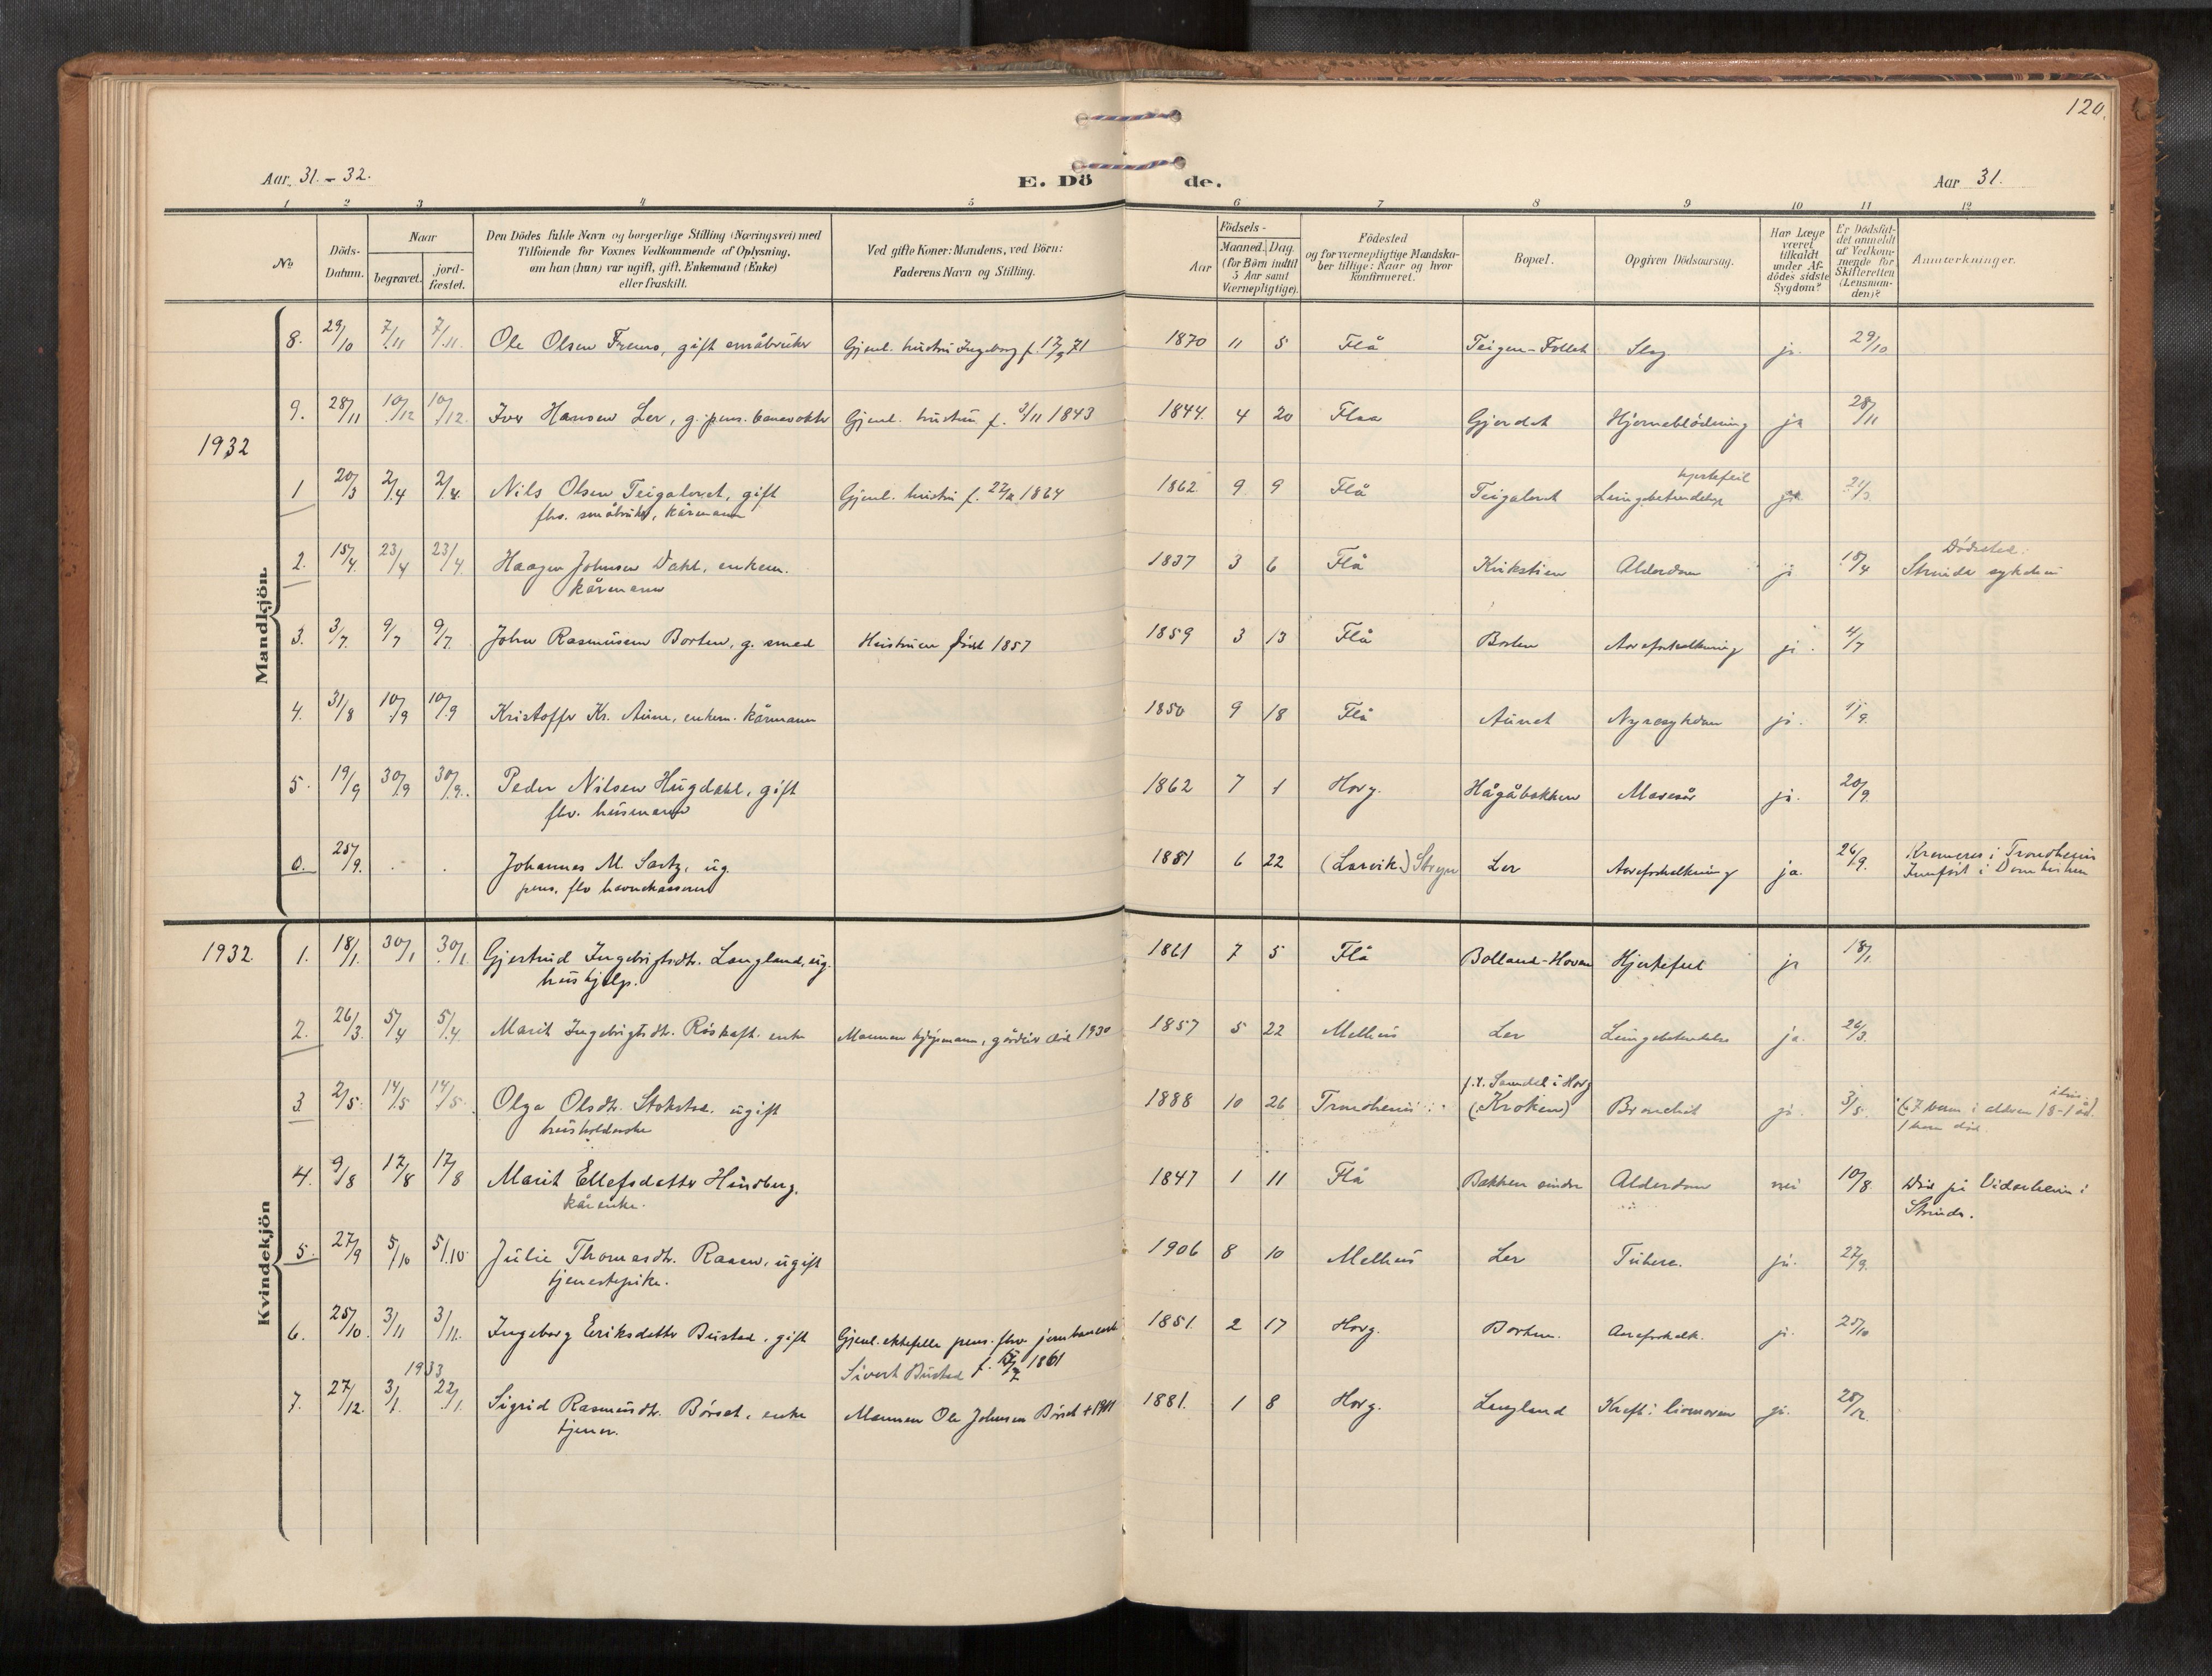 120.
Aar 31.-32.
E. Dö de.
Aar 31.
1 2 3 4 5 6 7 8 9 10 11 12
No
Döds-Datum.
Naar
begravet.
jord-fæstet.
Den Dödes fulde Navn og borgerlige Stilling (Næringsvei) med
Tilföiende for Voxnes Vedkommende af Oplysning,
om han (hun) var ugift, gift, Enkemand (Enke)
eller fraskilt.
Ved gifte Koner: Mandens, ved Börn:
Faderens Navn og Stilling.
Födsels-
Aar
Maaned. Dag.
(for Börn indtil
5 Aar samt
Værnepligtige).
Födested
og for værnepligtige Mandska-
ber tillige: Naar og hvor
konfirmeret.
Bopæl.
Opgiven Dödsaarsag.
Har Læge
været
tilkaldt
under Af-
dödes sidste
Sygdom?
Er Dödsfal-
det anmeldt
af Vedkom-
mende for
Skifteretten
(Lensman-
den)?
Anmærkninger.
Mandkjön.
8. 29/10 7/11 7/11. Ole Olsen Fremo, gift småbruker Gjenl. hustru Ingeborg f. 17/9 71 1870 11 5 Flå Teigen-Follet Slag ja. 29/10
9. 28/11 10/12 10/12. Iver Hansen Ler, g. pens. banevokter Gjenl. hustru f. 2/11 1843 1844. 4 20 Flaa Gjerdet Hjerneblödning ja 28/11
1932
hjertefeil
1 20/3 2/4 2/4. Nils Olsen Teigaloret, gift Gjenl. hustru f. 1864 1862 9 9 Flå Teigaloret Lungebetendelse ja 21/3.
flv. småbruker, kårmann
Dödssted:
2. 15/4. 23/4 23/4. Haagen Johnsen Dahl, enkem. 1837 3 6 Flå Kvikstien Alderdom ja 18/4 Strinda sykehus
kårmann
3. 3/7. 9/7 9/7. John Rasmusen Borten, g. smed Hustruen född 1857 1859 3 13 Flå Borten Aareforkalkning ja. 4/7
4. 31/8 10/9 10/9 Kristoffer Kr. Aune, enkem. kårmann 1850 9 18 Flå Aunet Nyresykdom ja. 1/9.
5. 19/9 30/9 30/9. Peder Nilsen Hugdahl, gift 1862 7 1 Horg. Hågåbakken Mavesår ja. 20/9.
flv. husmann
0. 25/9. . . Johannes M. Sartz, ug. 1881 6 22 (Larvik) Stryn Ler Aareforkalkning ja. 26/9. Kremeres i Trondheim
pens. flv havnekasserer Jernfört i Domkirken
Kvindekjön
1932. 1. 18/1. 30/1 30/1. Gjertrud Ingebrigtsdtr. Langland, ug. 1861 7 5 Flå Bolland-Hovan Hjertefeil ja 18/1.
hushjelp.
2. 26/3. 5/4 5/4. Marit Ingebrigtsdtr. Röskaft. enke Mannen kjöpmann, gårdeier död 1930 1857 5 22 Melhus Ler Lungebetendelse ja. 26/3.
f.t. Sandal i Horg
3. 2/5. 14/5 14/5. Olga Olsdtr. Stokstad. ugift 1888 10 26 Trondheim (Kroken) Bronchit ja. 3/5. 7 barn i alderen 18-1 år.
husholderske 1 barn död.
4. 9/8 17/8 17/8 Marit Ellefsdatter Hundberg. 1847 1 11 Flå Bakken söndre Alderdom nei 10/8. Död på Vidarheim i
kårenke. Strinda.
5. 27/9 5/10 5/10. Julie Thomasdtr. Raaen, ugift 1906 8 10 Melhus Ler Tuberc. ja. 27/9.
tjenestepike.
6. 25/10. 3/11 3/11. Ingeborg Eriksdatter Bustad, gift Gjenl. ektefelle pens. flv. jernbanearb. 1851 2 17 Horg. Borten. Aareforkalk. ja. 25/10
Sivert Bustad f. 1861
1933
7. 27/12. 3/1. 22/1. Sigrid Rasmusdtr. Börset, enke Mannen Ole Johnsen Börset + 1911 1881. 1 8 Horg. Langland Kreft i livmoren ja. 28/12.
tjener.